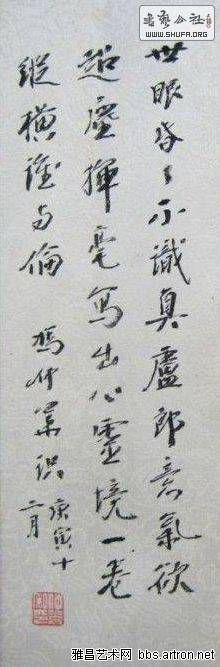 書藝公社
www.SHUFA.ORG
世眼昏々不識真盧郎意氣欲
超塵揮毫寫出心靈境一卷
縱橫誰與倫 馮仲
庚寅十
二月
雅昌艺术网 bbs.artron.net